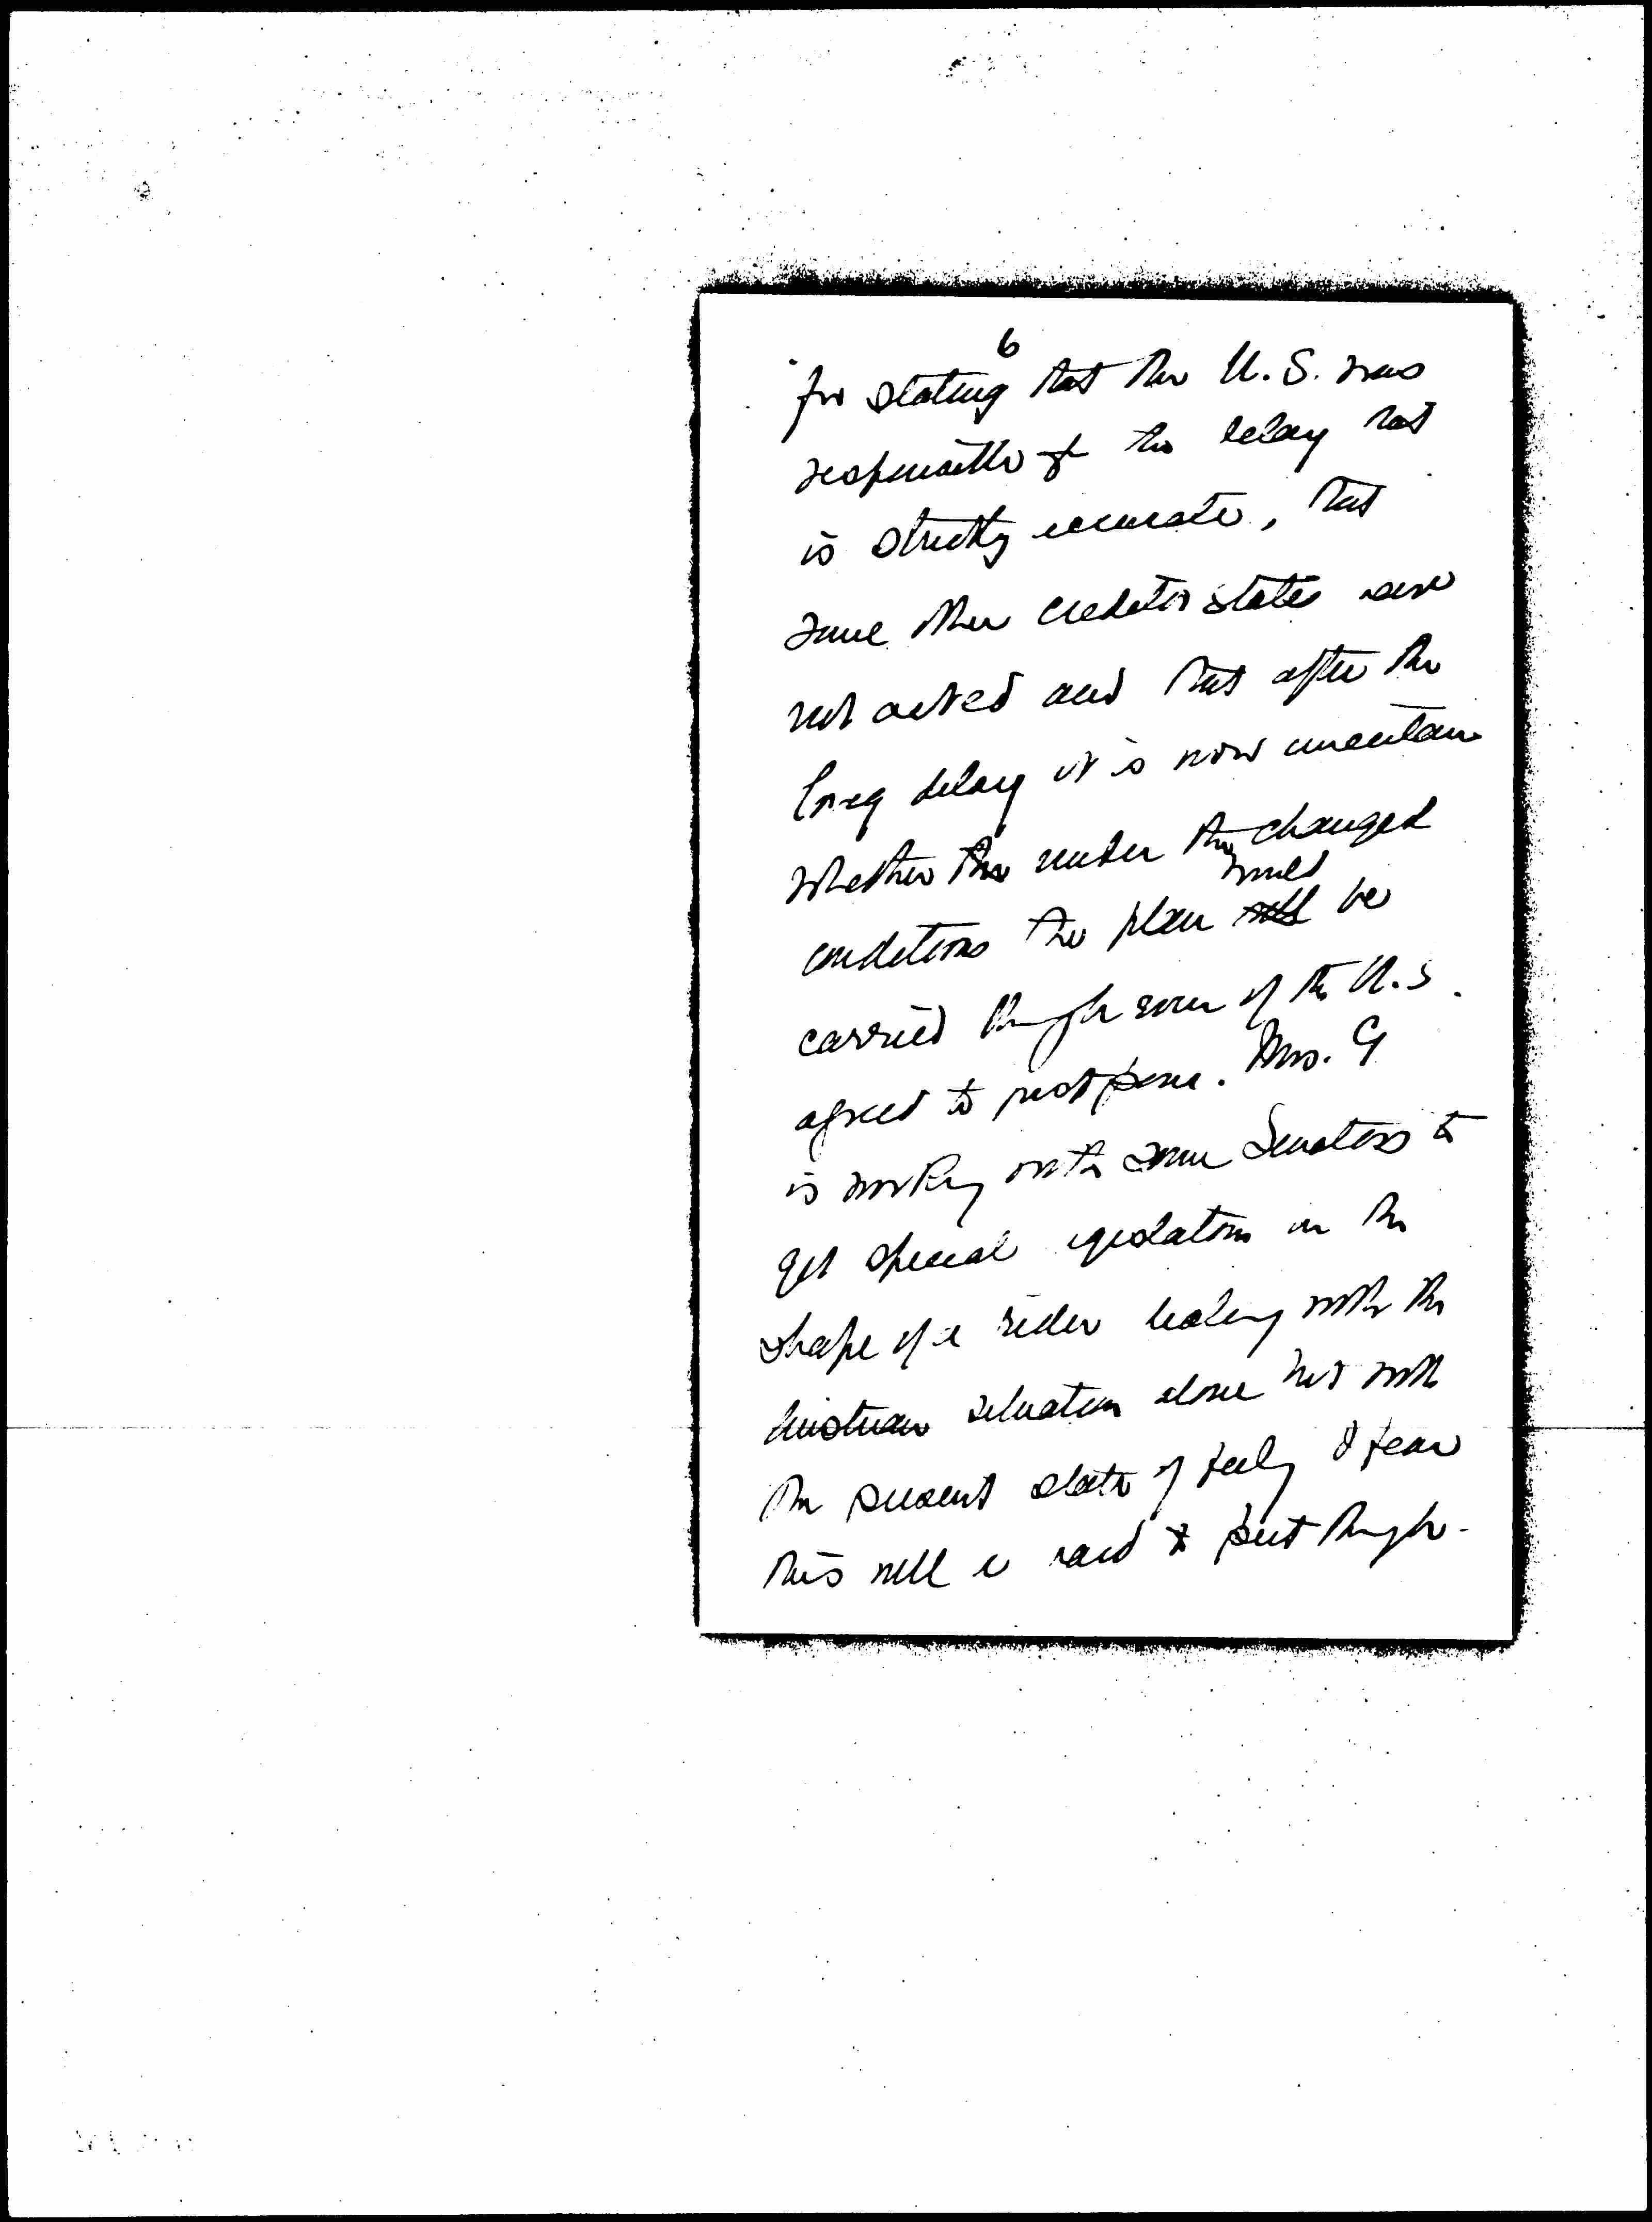 6
for stating that the U.S. was
responsible for the delay that
is strictly accurate, that
some other creditor states have
not acted and that after the
long delay it is now uncertain
whether the under the changed
would
conditions the plan will be
carried through even if the U.S.
agreed to postpone. Mrs. G
is working with some Senators to
get special legislation in the
shape of a rider dealing with the
Austrian situation alone but with
the present state of feeling I fear
this will be hard to put through.